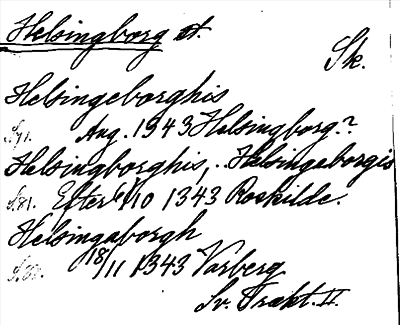 Helsingborg st.
Sk.
Helsingeborghis
S. 71. Aug. 1943 Helsingborg.?
Helsingborghis, Helsingaborgis
S. 81. Efter 6/10 1343 Roskilde.
Helsingaborgh
18/11 1343 Varberg
Sv. Trakt. II.